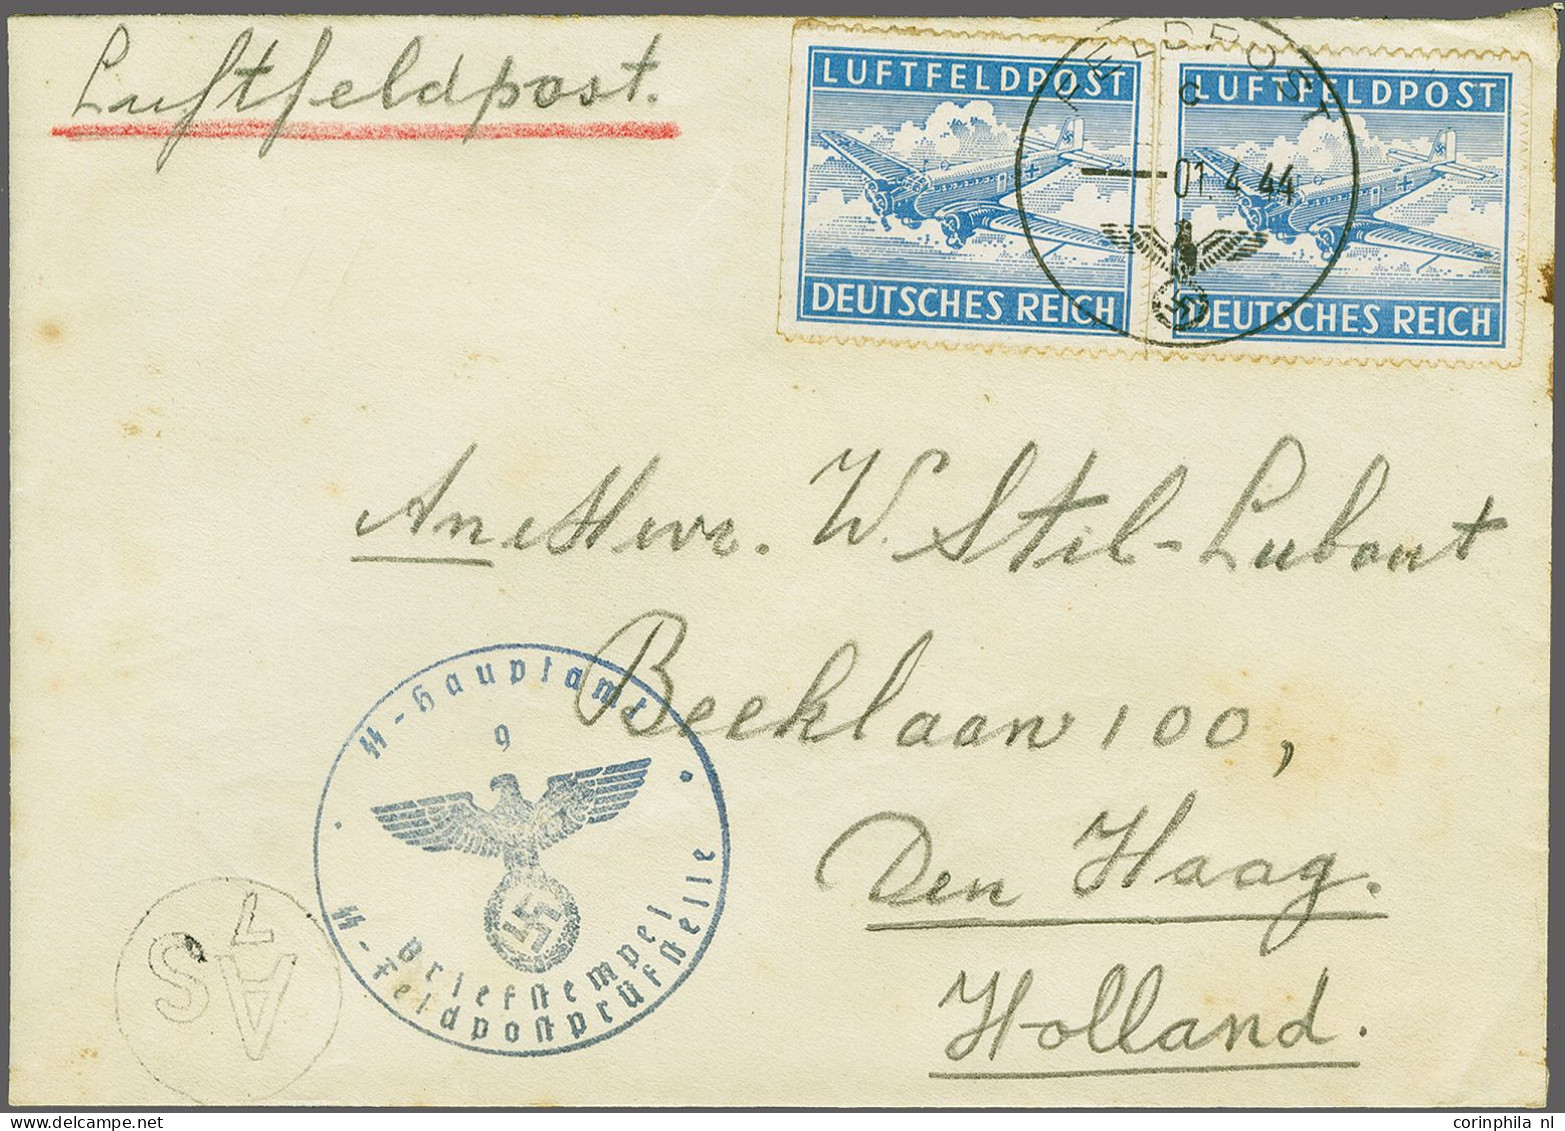 Luftfeldpost.
LUFTFELDPOST
DEUTSCHES REICH
LUFTFELDPOST
DEUTSCHES REICH
FELDPOST
c
01.4.44
An Herr. W. Stil-Lubout
Beeklaan 100,
Den Haag.
Holland.
SS-Hauptamt
9
Briefstempel
SS-Feldpostprüfstelle
7
AS
corinphila nl